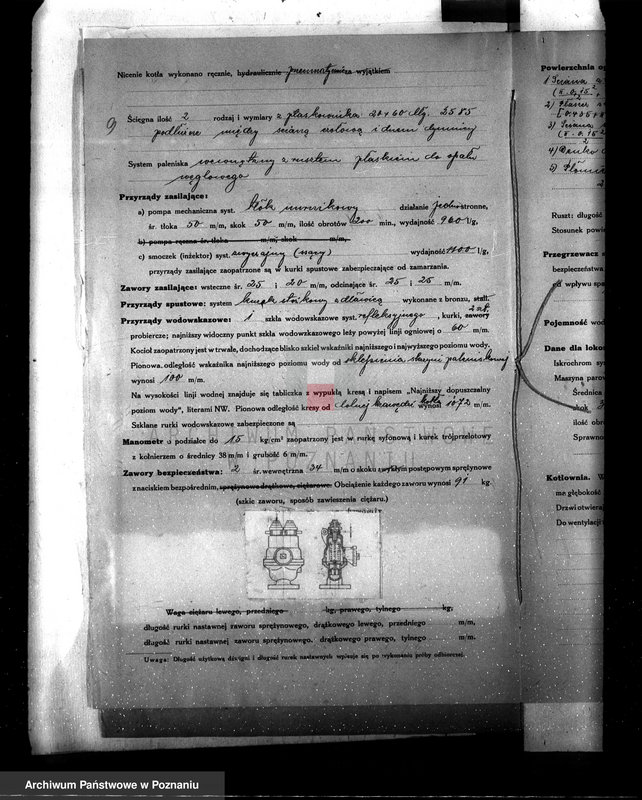 Nicenie kotła wykonano ręcznie, hydraulicznie pneumatycznie z wyjątkiem
9 Ściegna ilość 2 rodzaj i wymiary z płaskownika 20×60 dłg. 3585
podłużne między ścianą sitową i dnem dymnicy
System paleniska wewnętrzny z rusztem płaskim do opału
węglowego
Przyrządy zasilające:
a) pompa mechaniczna syst. tłok nurnikowy działanie jednostronne,
śr. tłoka 50 m/m, skok 50 m/m, ilość obrotów 200 min., wydajność 960 l/g,
b) pompa ręczna śr. tłoka m/m, skok m/m,
c) smoczek (inżektor) syst. (ssący) wydajność 1100 l/g,
przyrządy zasilające zaopatrzone są w kurki spustowe zabezpieczające od zamarzania.
Zawory zasilające: wsteczne śr. 25 i 20 m/m, odcinające śr. 25 i 25 m/m.
Przyrządy spustowe: system kurek stożkowy z dławicą wykonane z bronzu, stali.
Przyrządy wodowskazowe: 1 szkła wodowskazowe syst. refleksyjnego, kurki, zawory 2 szt.
probiercze; najniższy widoczny punkt szkła wodowskazowego leży powyżej linji ogniowej o 60 m/m.
Kocioł zaopatrzony jest w trwałe, dochodzące blisko szkieł wskaźniki najniższego i najwyższego poziomu wody.
Pionowa odległość wskaźnika najniższego poziomu wody od sklepienia skrzyni paleniskowej
wynosi 100 m/m.
Na wysokości linji wodnej znajduje się tabliczka z wypukłą kresą i napisem „Najniższy dopuszczalny
poziom wody", literami NW. Pionowa odległość kresy od dolnej krawędzi kotła wynosi 1072 m/m.
Szklane rurki wodowskazowe zabezpieczone są
Manometr o podziałce do 15 kg/cm² zaopatrzony jest w rurkę syfonową i kurek trójprzelotowy
z kołnierzem o średnicy 38 m/m i grubość 6 m/m.
Zawory bezpieczeństwa: 2 śr. wewnętrzna 34 m/m o skoku zwykłym postępowym sprężynowe
z naciskiem bezpośrednim, sprężynowe drążkowe, ciężarowe. Obciążenie każdego zaworu wynosi 91 kg.
(szkic zaworu, sposób zawieszenia ciężaru.)
Waga ciężaru lewego, przedniego kg, prawego, tylnego kg,
długość rurki nastawnej zaworu sprężynowego, drążkowego lewego, przedniego m/m,
długość rurki nastawnej zaworu sprężynowego, drążkowego prawego, tylnego m/m,
Uwaga: Długość użytkową dźwigni i długość rurek nastawnych wpisuje się po wykonaniu próby odbiorczej.
Powierzchnia og
1) Ściana
2)
3) Ściana
4) Denko
5) Płomie
Ruszt: długość
Stosunek powi
Przegrzewacz s
bezpieczeństwa
od wpływu spa
Pojemność wod
Dane dla loko
Iskrochron sy
Maszyna parow
Średnica
skok
ilość obro
Sprawno
Kotłownia. W
ma głębokość
Drzwi otwieraj
Do wentylacji
ARCHIWUM PAŃSTWOWE
W POZNANIU
Archiwum Państwowe w Poznaniu